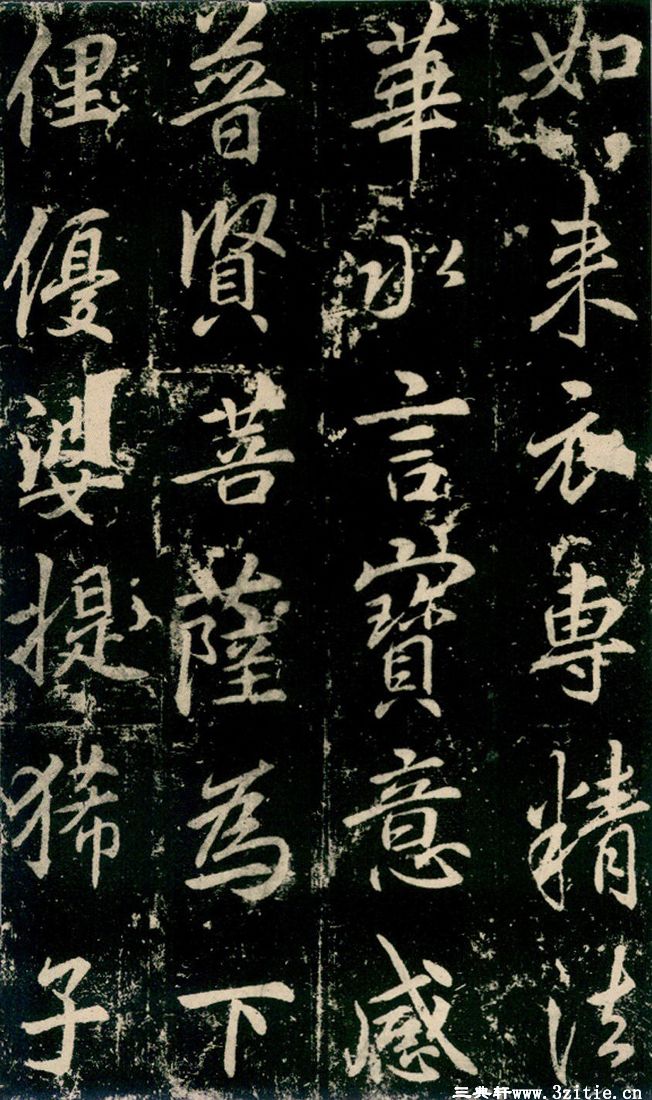 如来衣專精法
華永言寶意感
普賢菩薩為下
俚優婆提狶子
三典轩www.3zitie.cn